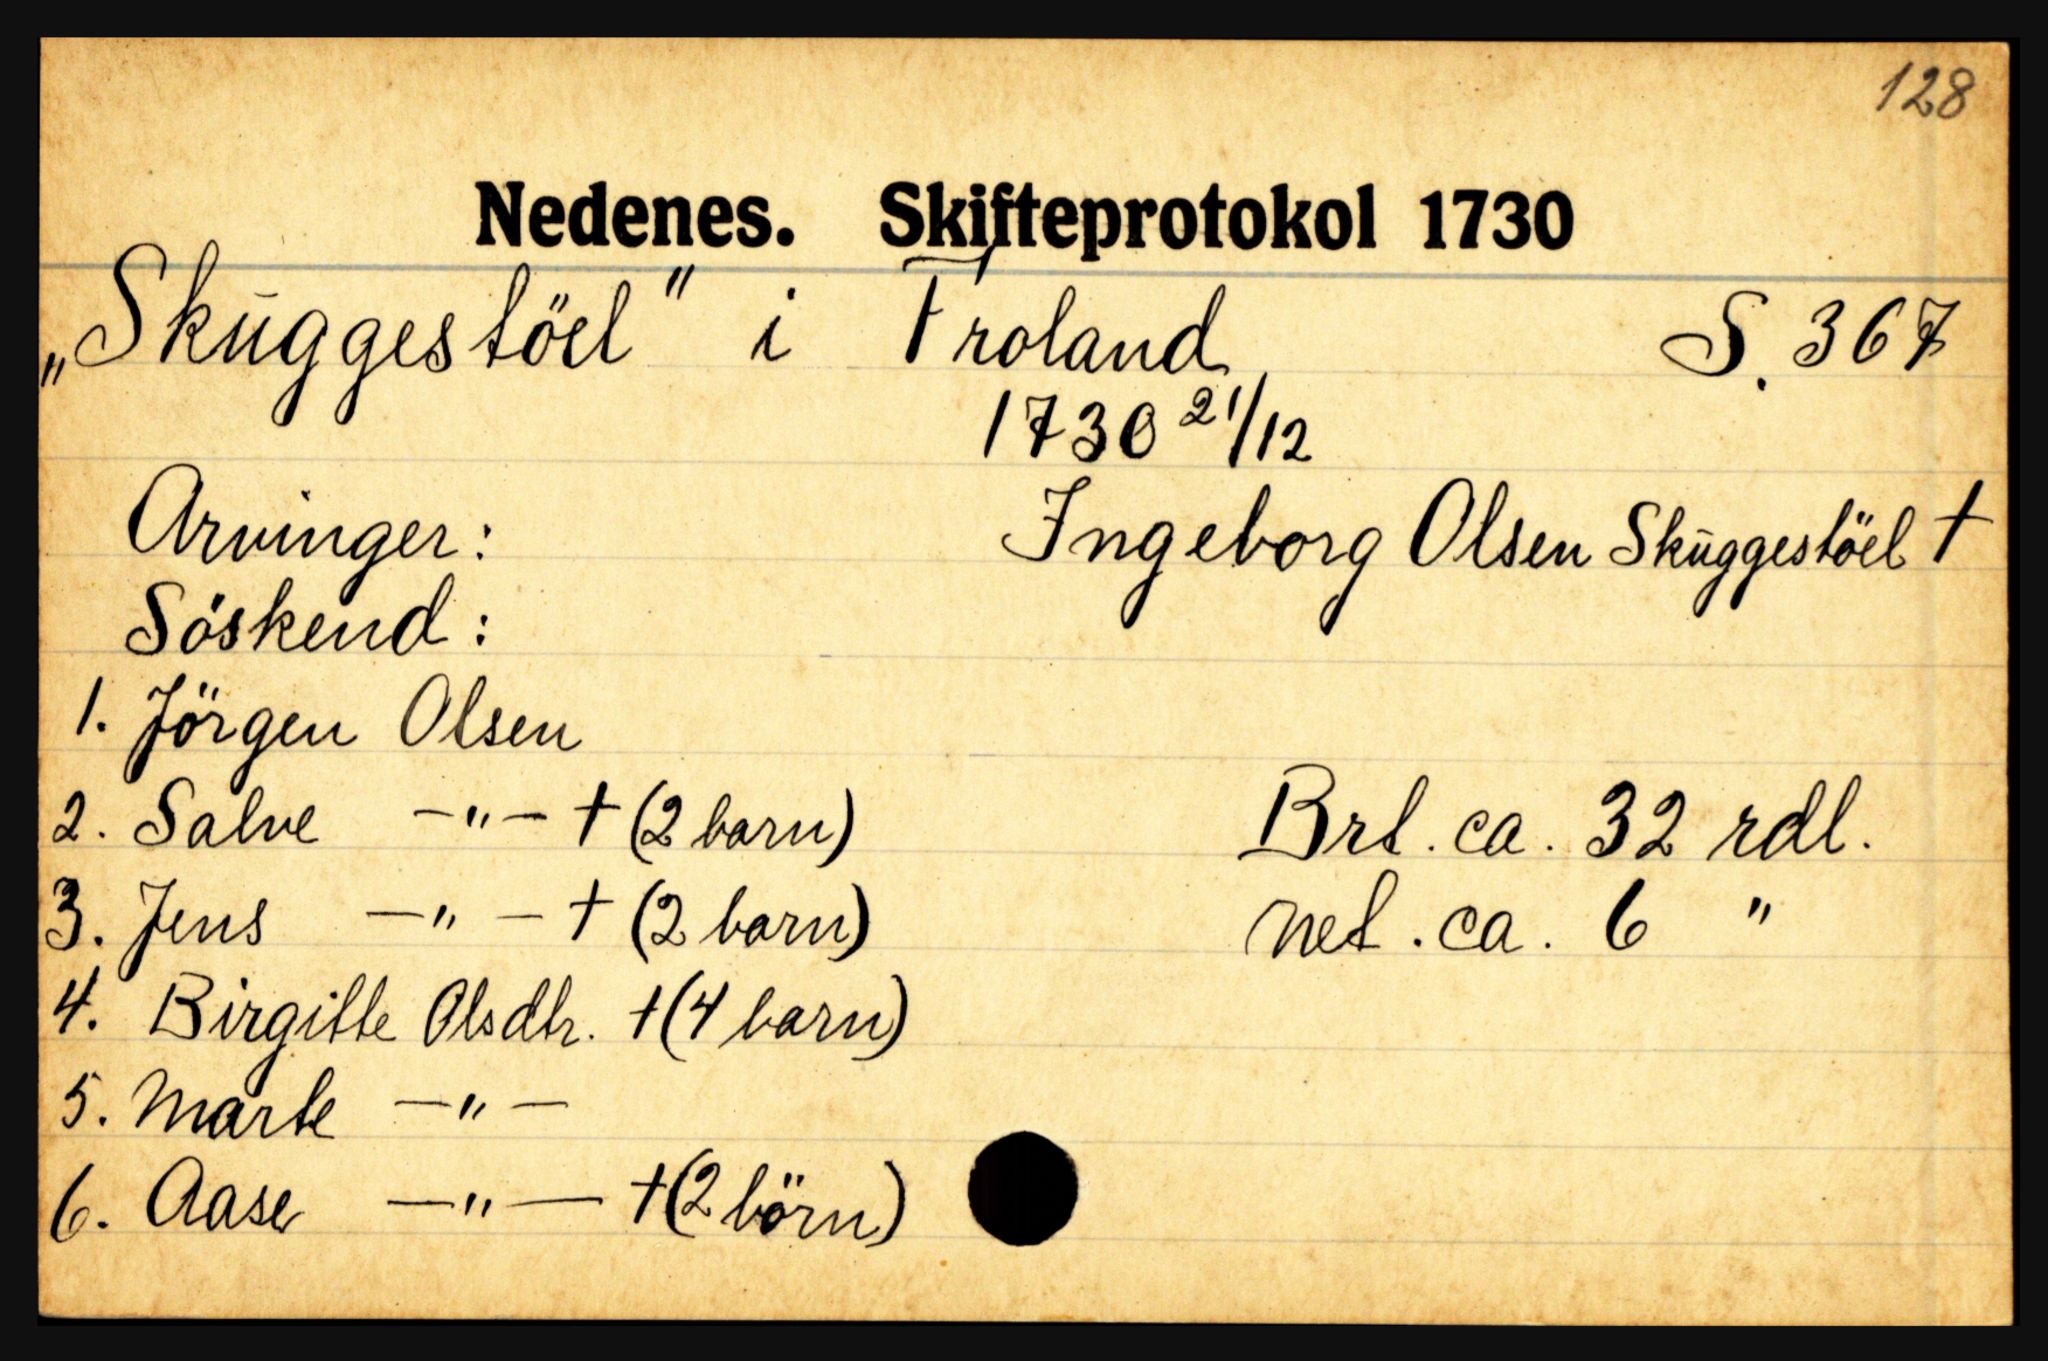 128
Nedenes. Skifteprotokol 1730
„Skūggestöel" i Froland S. 367
1730 21/12
Arvinger: Ingeborg Olsen Skūggestöel †
Söskend:
1. Jörgen Olsen
2. Salve —"— † (2 barn) Brt. ca. 32 rdl.
3. Jens —"— † (2 barn) net. ca. 6 "
4. Birgitte Olsdtr. † (4 barn)
5. Marte —"—
6. Aase —"— † (2 börn)